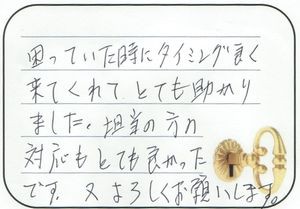 困っていた時にタイミング良く
来てくれて とても助かり
ました。担当の方の
対応もとても良かった
です。又よろしくお願いします。